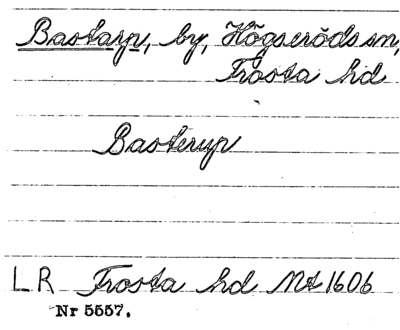 Bastarp, by, Högseröds sn,
Frosta hd
Basterup
LR Frosta hd Mt 1606
Nr 5557.